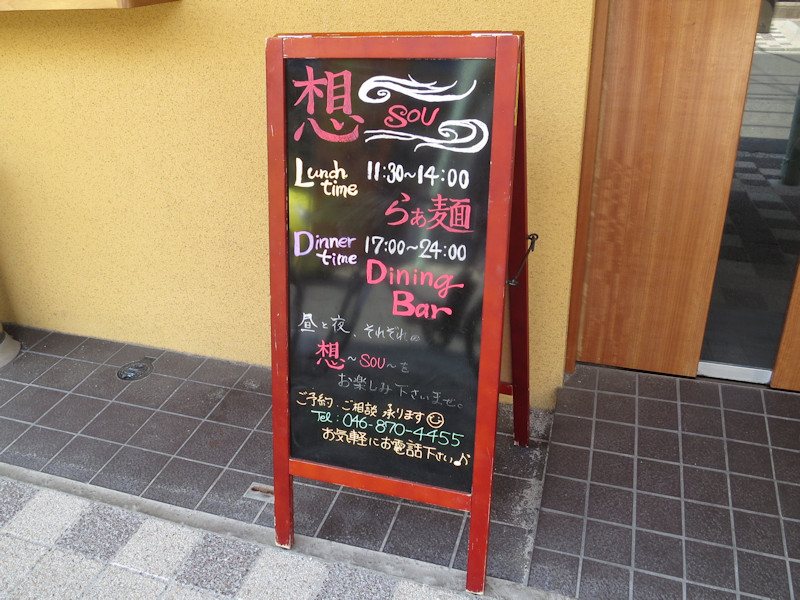 想 SOU
Lunch time 11:30～14:00
らぁ麺
Dinner time 17:00～24:00
Dining
Bar
昼と夜、それぞれの
想～SOU～を
お楽しみ下さいませ。
ご予約、ご相談 承ります
Tel: 046-870-4455
お気軽にお電話下さい♪